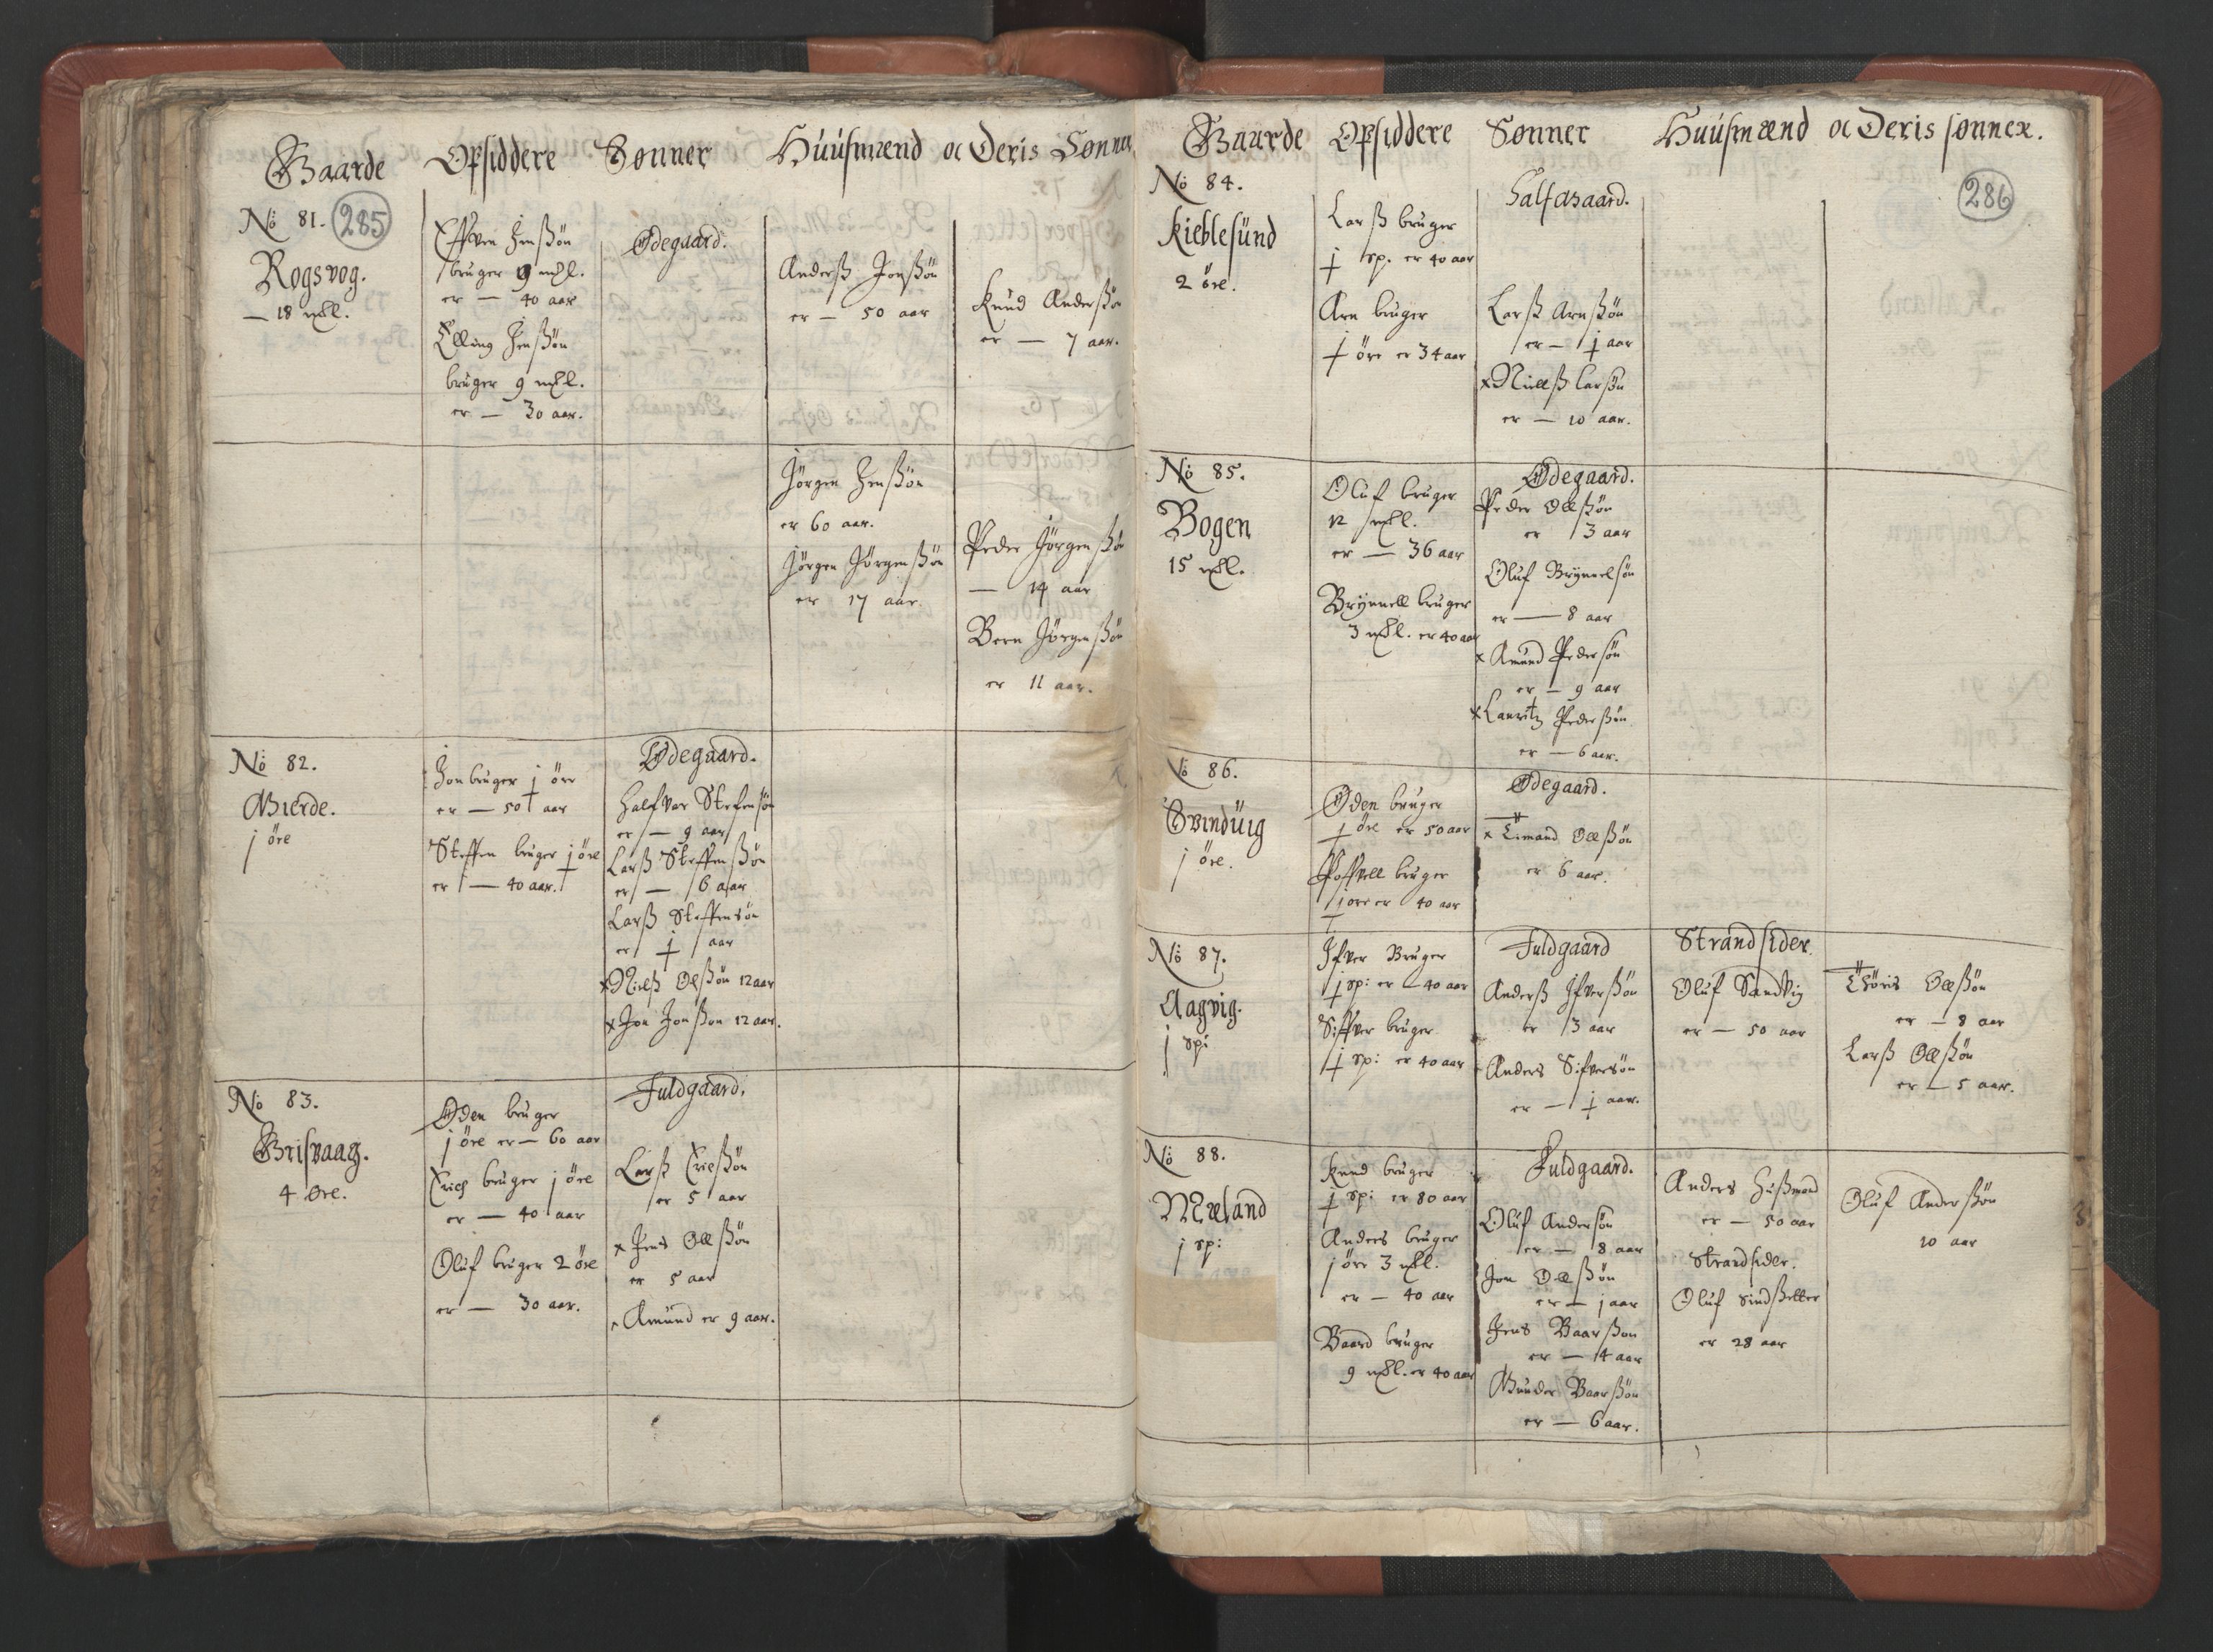 Gaarde Opsiddere Sønner Huusmænd oc Deris Sønner
No 81. 285
Rogsvog.
— 18 mkl.
Effven Jenßön
bruger 9 mkl.
er — 40 aar
Elling Jenßön
bruger 9 mkl.
er — 30 aar.
Ødegaard.
Anderß Jonßön
er — 50 aar
Knud Anderßön
er — 7 aar.
Jörgen Jenßön
er 60 aar.
Jörgen Jörgenßön
er 17 aar.
Peder Jörgenßön
— 14 aar
Bern Jörgenßön
er 11 aar.
No 82.
Gierde.
j öre
Jon bruger j öre
er — 50 aar
Steffen bruger j öre
er — 40 aar.
Ødegaard.
Halfvor Stefensön
er — 9 aar
Larß Steffenßön
er — 6 aar
Larß Steffensön
er j aar
× Nielß Olßön 12 aar
× Jon Jonßon 12 aar.
No 83.
Grisvaag.
4 öre.
Oden bruger
j öre er — 60 aar
Erich bruger j öre
er — 40 aar
Oluf bruger 2 öre
er — 30 aar.
Fuldgaard.
Larß Erichßön
er 5 aar
× Jens Olßön
er 5 aar
× Amund er 9 aar.
Gaarde Opsiddere Sønner Huusmænd oc Deris sønner.
286
No 84.
Kieblesund
2 öre.
Larß bruger
j sp. er 40 aar
Arn bruger
j öre er 34 aar
Halfgaard.
Larß Arnßön
er — j aar
× Nielß Larsön
er — 10 aar.
No 85.
Bogen
15 mkl.
Oluf bruger
12 mkl.
er — 36 aar
Brynnell bruger
3 mkl. er 40 aar
Ødegaard.
Peder Olßön
er 3 aar
Oluf Brynnelsön
er — 8 aar
× Amund Pedersön
er — 9 aar
× Lauritz Pederßön
er — 6 aar.
No 86.
Svindvig
j öre.
Oden bruger
j öre er 50 aar
Poffvell bruger
j öre er 40 aar
Ødegaard.
× Eimand Olßön
er 6 aar.
No 87.
Aagvig.
j sp:
Ifver Bruger
j sp: er 40 aar
Siffver bruger
j sp: er 40 aar
Fuldgaard
Anderß Ifverßön
er 3 aar
Anders Sifversön
er — j aar.
Strandsider.
Oluf Sandvig
er — 50 aar
Thöris Olßön
er — 8 aar
Larß Olßön
er — 5 aar.
No 88.
Mæland
j sp:
Knud bruger
j sp: er 80 aar
Anders bruger
j öre 3 mkl.
er — 40 aar
Baard bruger
9 mkl. er 40 aar
Fuldgaard.
Oluf Andersön
er — 8 aar
Jon Olßön
er — j aar
Jens Baarßon
er — 14 aar
Gunder Baarßön
er — 6 aar.
Anders Hußmand
er — 50 aar
Strandsider.
Oluf Sindßetter
er 28 aar
Oluf Anderßön
10 aar